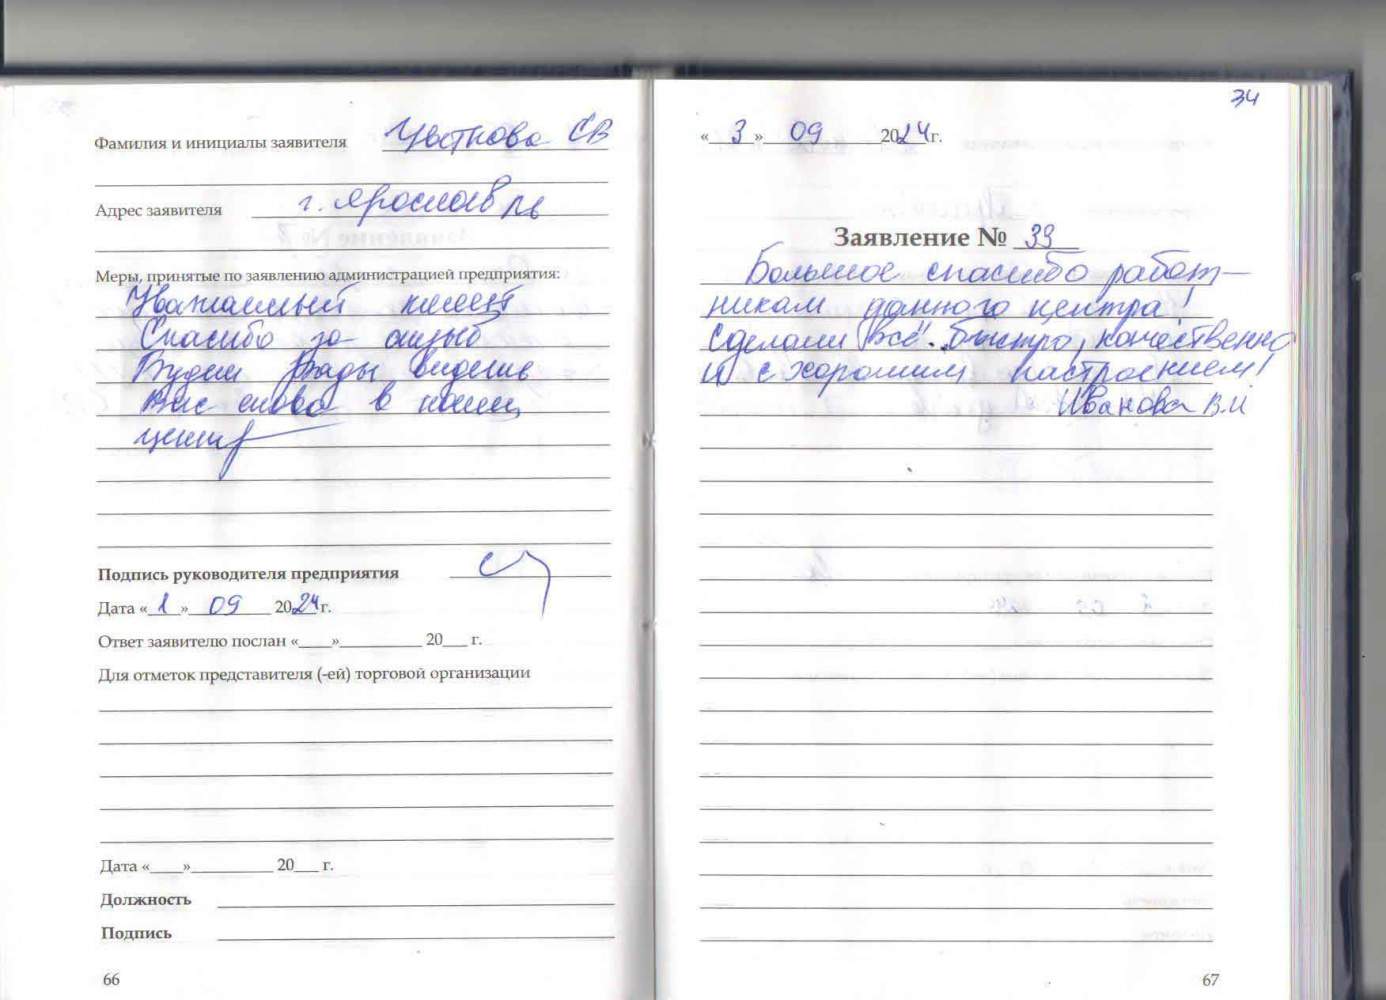 Фамилия и инициалы заявителя Цветкова СВ
Адрес заявителя г. Ярославль
Меры, принятые по заявлению администрацией предприятия:
Уважаемый клиент
Спасибо за отзыв
Будем рады видеть
Вас снова в нашем
центре
Подпись руководителя предприятия
Дата «1» 09 2024г.
Ответ заявителю послан «___»__________ 20___ г.
Для отметок представителя (-ей) торговой организации
Дата «____»__________ 20___ г.
Должность
Подпись
66
34
«3» 09 2024г.
Заявление № 33
Большое спасибо работ-
никам данного центра!
Сделали всё быстро, качественно
и с хорошим настроением!
Иванова В.И
67